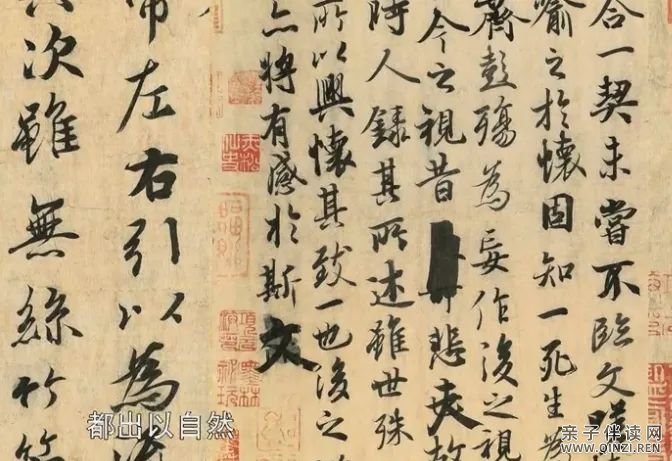 合一契未嘗不臨文嗟
喻之於懷固知一死生為
齊彭殤為妄作後之視
今之視昔悲夫故
時人錄其所述雖世殊
所以興懷其致一也後之
亦將有感於斯文
帶左右引以為流
其次雖無絲竹管
都出以自然
亲子伴读网
WWW.QINZI.REN